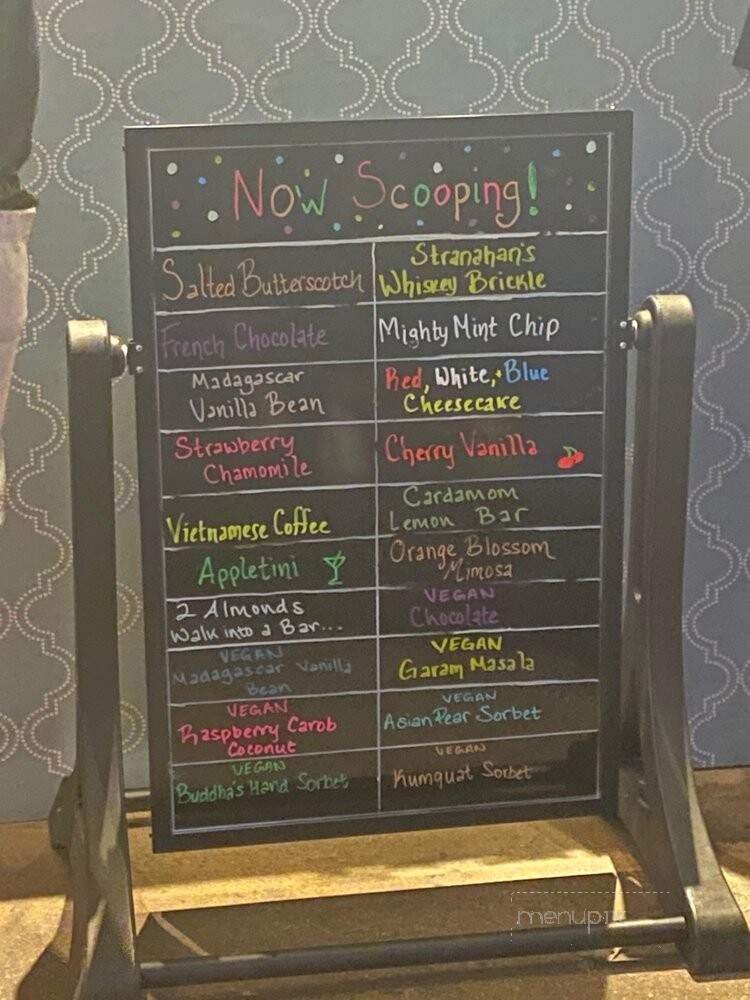 Now Scooping!
Salted Butterscotch
Stranahan's
Whiskey Brickle
French Chocolate
Mighty Mint Chip
Madagascar
Vanilla Bean
Red, White, + Blue
Cheesecake
Strawberry
Chamomile
Cherry Vanilla
Vietnamese Coffee
Cardamom
Lemon Bar
Appletini
Orange Blossom
Mimosa
2 Almonds
Walk into a Bar...
VEGAN
Chocolate
VEGAN
Madagascar Vanilla
Bean
VEGAN
Garam Masala
VEGAN
Raspberry Carob
Coconut
VEGAN
Asian Pear Sorbet
VEGAN
Buddha's Hand Sorbet
VEGAN
Kumquat Sorbet